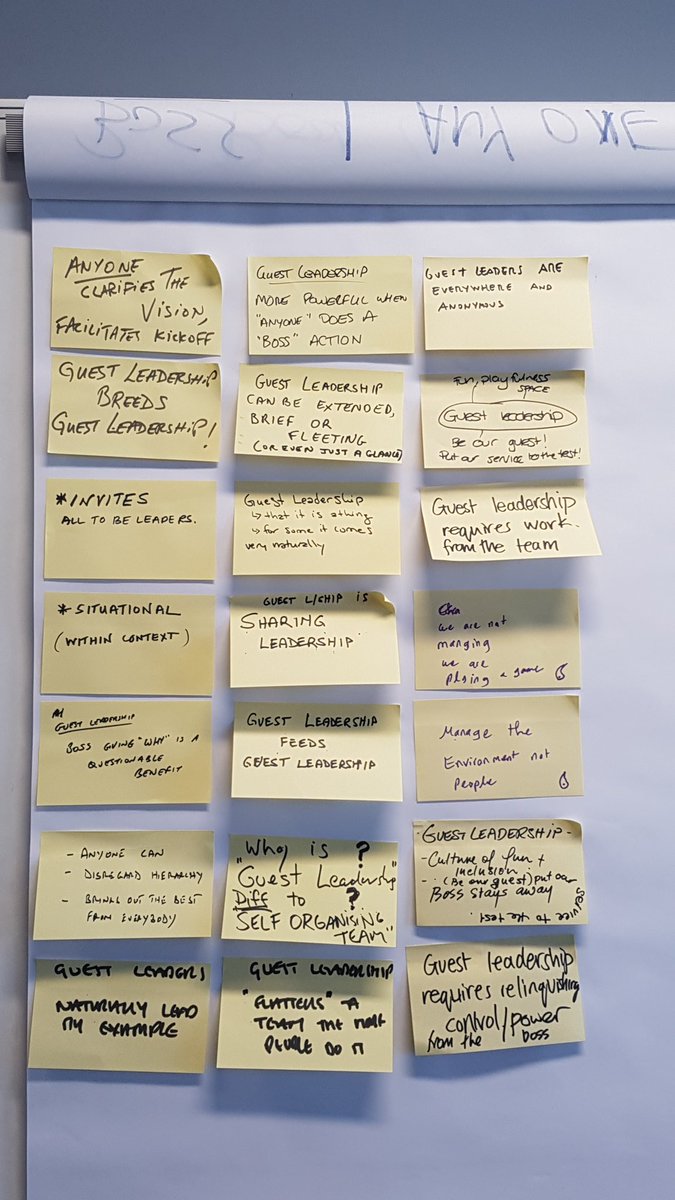 BOSS | ANY ONE
ANYONE
CLARIFIES THE
VISION,
FACILITATES KICKOFF
GUEST LEADERSHIP
MORE POWERFUL WHEN
"ANYONE" DOES A
"BOSS" ACTION
GUEST LEADERS ARE
EVERYWHERE AND
ANONYMOUS
GUEST LEADERSHIP
BREEDS
GUEST LEADERSHIP!
GUEST LEADERSHIP
CAN BE EXTENDED,
BRIEF OR
FLEETING
(OR EVEN JUST A GLANCE)
Fun, playfulness
SPACE
Guest leadership
Be our guest!
Put our service to the test!
*INVITES
ALL TO BE LEADERS.
Guest Leadership
↳ that it is a thing
↳ for some it comes
very naturally
Guest leadership
requires work.
from the team
*SITUATIONAL
(WITHIN CONTEXT)
GUEST L/SHIP IS
SHARING
LEADERSHIP
we are not
manging
we are
plsing a game
GUEST LEADERSHIP
BOSS GIVING "WHY" IS A
QUESTIONABLE
BENEFIT
GUEST LEADERSHIP
FEEDS
GUEST LEADERSHIP
Manage the
Environment not
People
- ANYONE CAN
- DISREGARD HIERARCHY
- BRINGS OUT THE BEST
FROM EVERYBODY
"Why is ?
"Guest Leadership"
Diff to ?
SELF ORGANISING
TEAM"
- GUEST LEADERSHIP -
- Culture of fun +
inclusion
- (Be our guest) put our
service to the test
Boss stays away
GUEST LEADERS
NATURALLY LEAD
BY EXAMPLE
GUEST LEADERSHIP
"FLATTENS" A
TEAM THE MORE
PEOPLE DO IT
Guest leadership
requires relinquishing
control/power
from the boss